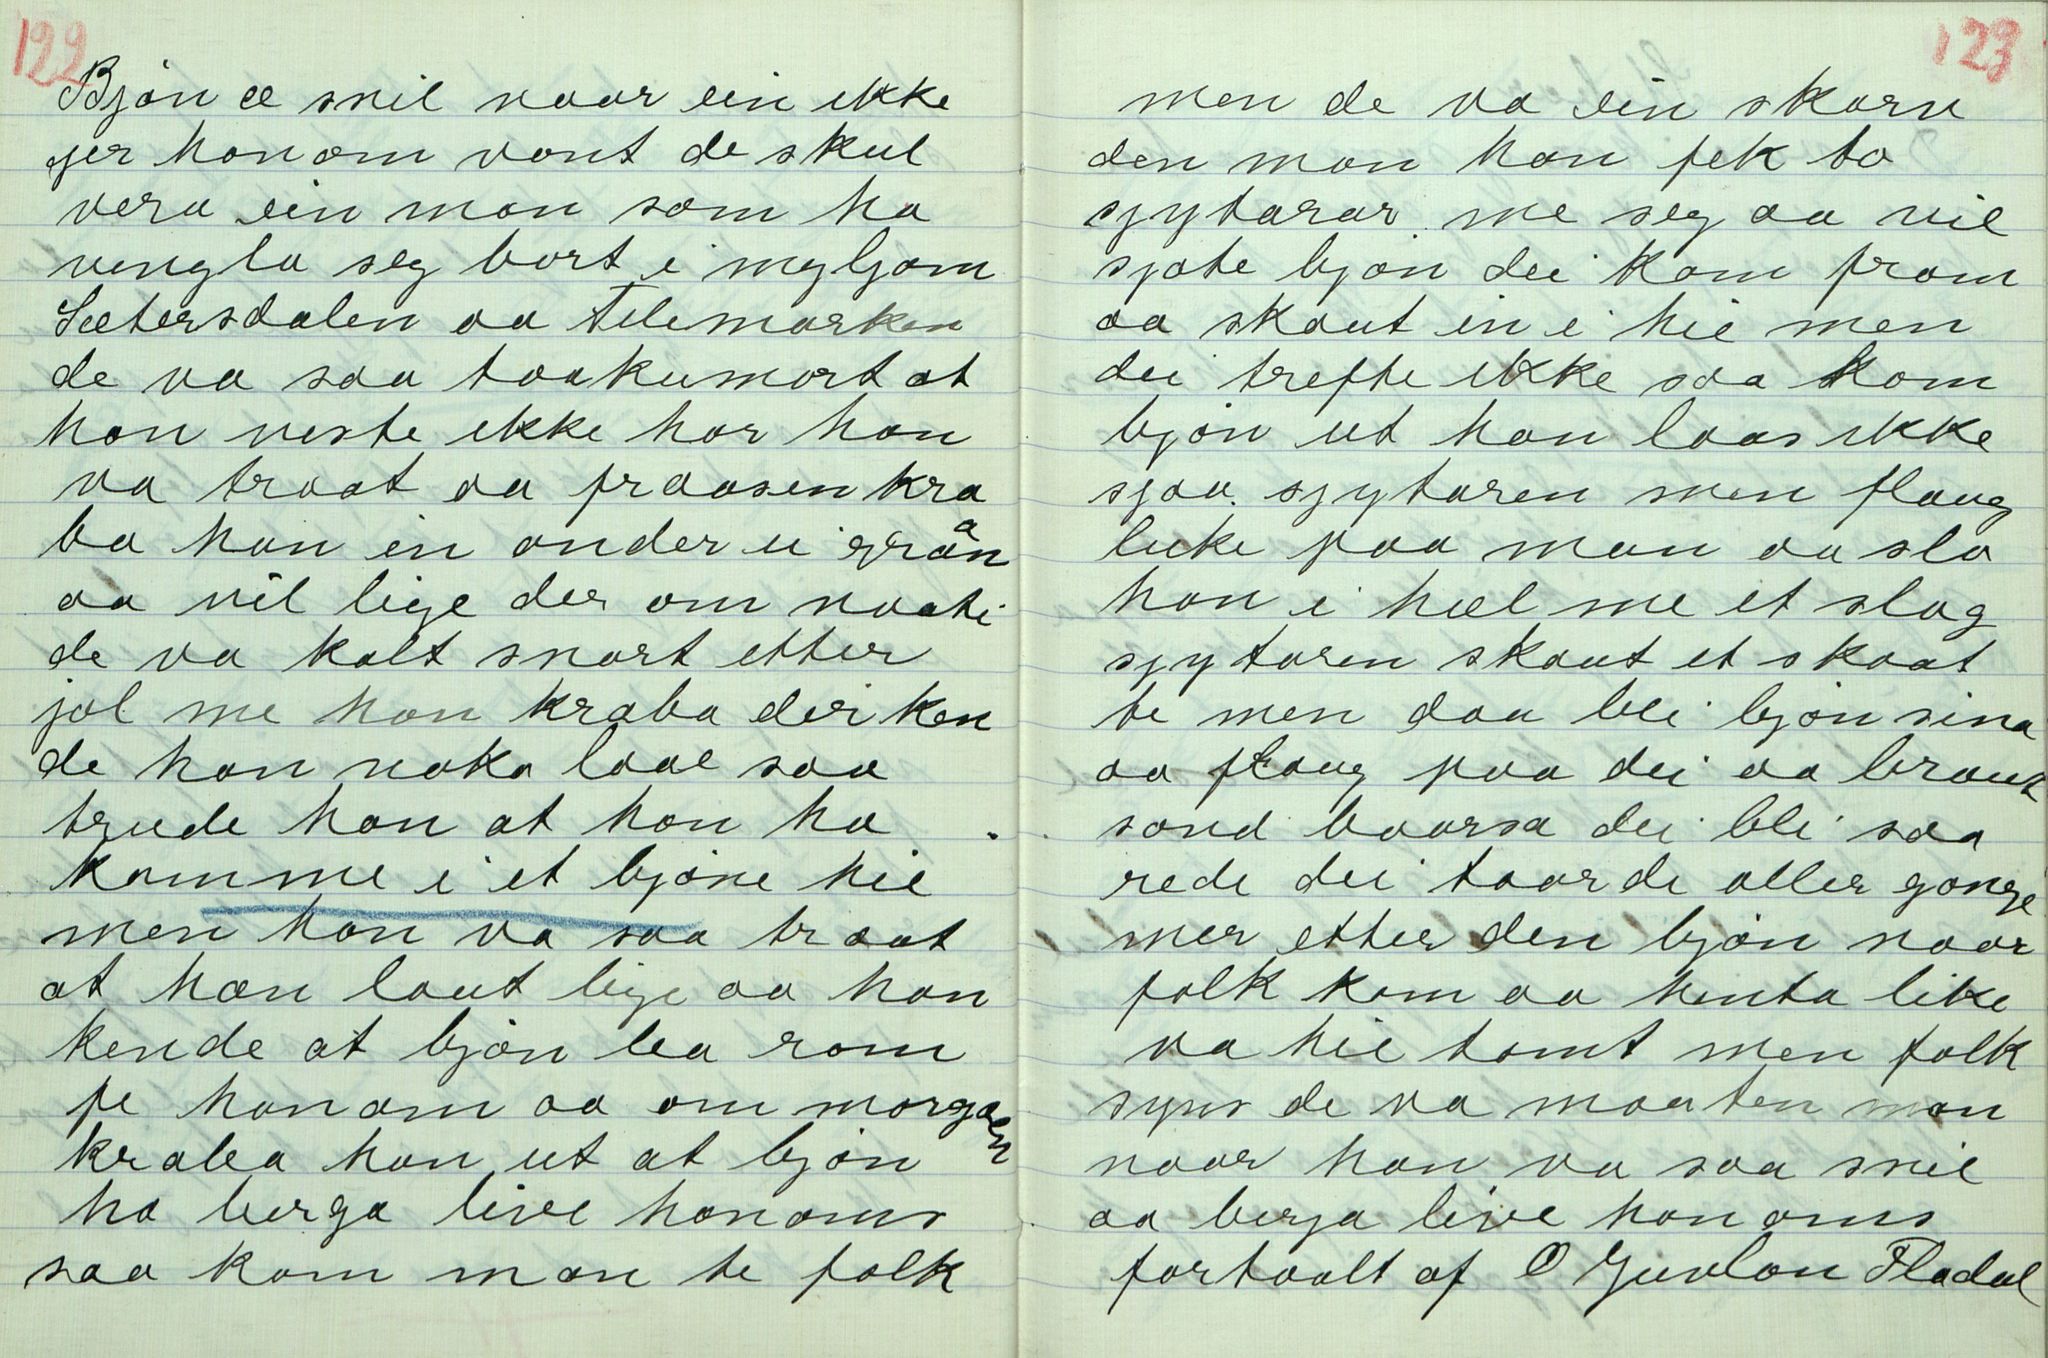 122
Bjøn æ snil naar ein ikke
jer honom vont de skul
vera ein mon som ha
vengla seg bort i myljom
Sætersdalen aa Telemarken
de va saa taakumort at
han viste ikke hor han
va traat aa fraasen kra
ba han in onder ei grån
aa vil lige der om naati
de va kalt snart etter
jol me han kraba der ken
de han noko laae saa
trude han at han ha
komme i et bjøne hie
men han va saa traat
at han laut lige aa han
kende at bjøn lea rom
fe honom aa om morgaen
kraba han ut at bjøn
ha berga live honoms
saa kom mon te folk
123
men de va ein skarv
den mon han fek to
sjytarar me seg aa vil
sjøte bjøn dei kom from
aa skaut in i hie men
dei trefte ikke saa kom
bjøn ut han laas ikke
sjaa sjytaren men flaug
beike paa man aa slo
han i hæl me et slag
sjytaren skaut et skaat
te men daa blei bjøn sina
aa flaug paa dei aa brauk
sond baarsa dei blei saa
rede dei taarde aller gonge
mer etter den bjøn naar
folk kom aa henta like
va hie tomt men folk
syns de va maaten mon
naar han va saa snil
aa berja live honoms
fortaalt af O Gjuvlon Fladal